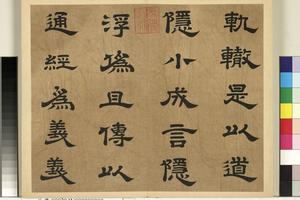 軌轍是以道
隱小成言隱
浮偽且傳以
通經為義義